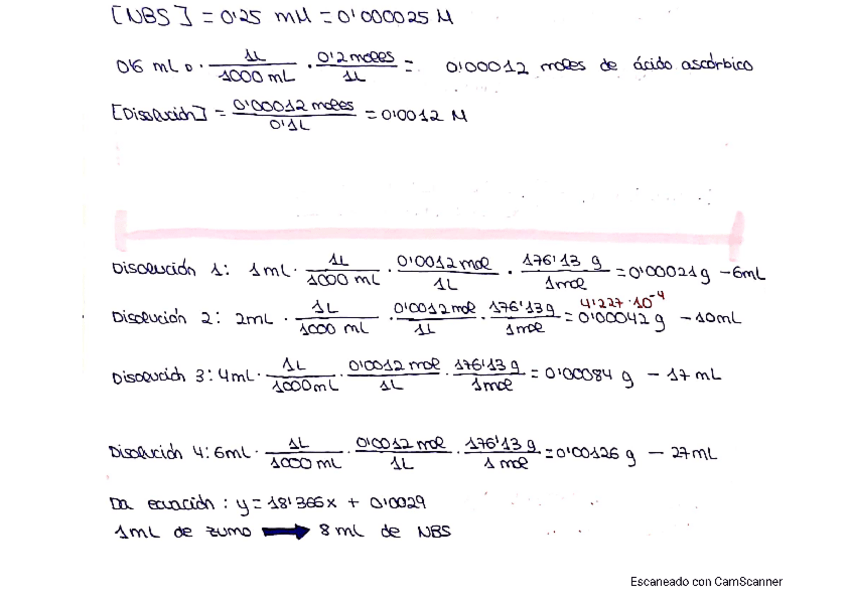 [NBS] = 0'25 mM = 0'000025 M
0'6 mL · 1L/1000 mL · 0'2 moles/1L = 0'00012 moles de ácido ascórbico
[Disolución] = 0'00012 moles/0'1L = 0'0012 M
Disolución 1: 1mL · 1L/1000 mL · 0'0012 mol/1L · 176'13 g/1mol = 0'00021g - 6mL
4'227·10⁻⁴
Disolución 2: 2mL · 1L/1000 mL · 0'0012 mol/1L · 176'13 g/1mol = 0'00042 g - 10mL
Disolución 3: 4mL · 1L/1000mL · 0'0012 mol/1L · 176'13 g/1mol = 0'00084 g - 17 mL
Disolución 4: 6mL · 1L/1000 mL · 0'0012 mol/1L · 176'13 g/1 mol = 0'00126 g - 27mL
Da ecuación: y = 18'366x + 0'0029
1mL de zumo → 8 mL de NBS
Escaneado con CamScanner